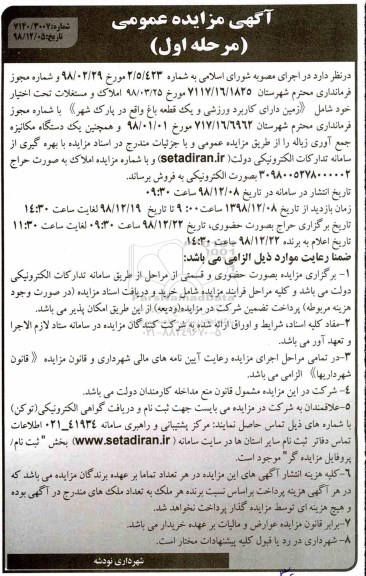 شماره: ۷۱۴۰/۳۰۰۷
تاریخ: ۹۸/۱۲/۰۵
آگهی مزایده عمومی
(مرحله اول)
درنظر دارد در اجرای مصوبه شورای اسلامی به شماره ۲/۵/۴۲۳ مورخ ۹۸/۰۲/۲۹ و شماره مجوز
فرمانداری محترم شهرستان ۷۱۱۷/۱۶/۱۸۲۵ مورخ ۹۸/۰۳/۲۵ املاک و مستغلات تحت اختیار
خود شامل «زمین دارای کاربرد ورزشی و یک قطعه باغ واقع در پارک شهر» با شماره مجوز
فرمانداری محترم شهرستان ۷۱۷/۱۶/۶۹۶۲ مورخ ۹۸/۰۱/۰۱ و همچنین یک دستگاه مکانیزه
جمع آوری زباله را از طریق مزایده عمومی و با جزئیات مندرج در اسناد مزایده با بهره گیری از
سامانه تدارکات الکترونیکی دولت (setadiran.ir) و با شماره مزایده املاک به صورت حراج
۳۰۹۸۰۰۵۲۷۸۰۰۰۰۰۲ بصورت الکترونیکی به فروش برساند.
تاریخ انتشار در سامانه در تاریخ ۹۸/۱۲/۰۸ ساعت ۰۹:۳۰
زمان بازدید از تاریخ ۱۳۹۸/۱۲/۰۸ ساعت ۹:۰۰ تا تاریخ ۹۸/۱۲/۱۹ لغایت ساعت ۱۴:۳۰
تاریخ برگزاری حراج بصورت حضوری، تاریخ ۹۸/۱۲/۲۲ ساعت ۰۹:۳۰ لغایت ساعت ۱۱:۳۰
تاریخ اعلام به برنده ۹۸/۱۲/۲۲ ساعت ۱۴:۳۰
ضمنا رعایت موارد ذیل الزامی می باشد:
۱- برگزاری مزایده بصورت حضوری و قسمتی از مراحل از طریق سامانه تدارکات الکترونیکی
دولت می باشد و کلیه مراحل فرایند مزایده شامل خرید و دریافت اسناد مزایده (در صورت وجود
هزینه مربوطه) پرداخت تضمین شرکت در مزایده(ودیعه) از این طریق امکان پذیر می باشد.
۲-مفاد کلیه اسناد، شرایط و اوراق ارائه شده به شرکت کنندگان مزایده در سامانه ستاد لازم الاجرا
و تعهد آور می باشد.
۳-در تمامی مراحل اجرای مزایده رعایت آیین نامه های مالی شهرداری و قانون مزایده «قانون
شهرداریها» الزامی می باشد.
۴- شرکت در این مزایده مشمول قانون منع مداخله کارمندان دولت می باشد.
۵-علاقمندان به شرکت در مزایده می بایست جهت ثبت نام و دریافت گواهی الکترونیکی(توکن)
با شماره های ذیل تماس حاصل نمایند: مرکز پشتیبانی و راهبری سامانه ۴۱۹۳۴_۰۲۱ اطلاعات
تماس دفاتر ثبت نام سایر استان ها در سایت سامانه (www.setadiran.ir) بخش "ثبت نام/
پروفایل مزایده گر" موجود است.
۶-کلیه هزینه انتشار آگهی های این مزایده در هر تعداد تماما بر عهده برندگان مزایده می باشد که
در هر آگهی هزینه پرداخت براساس نسبت برنده هر ملک به تعداد ملک های مندرج در آگهی بوده
و هیچ هزینه ای توسط مزایده گذار پرداخت نخواهد شد.
۷-برابر قانون مزایده عوارض و مالیات بر عهده خریدار می باشد.
۸-شهرداری در رد یا قبول کلیه پیشنهادات مختار است.
شهرداری نودشه